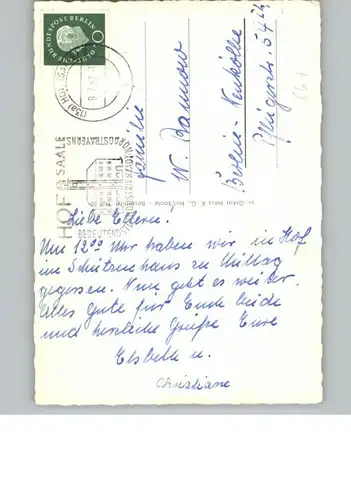 DEUTSCHE BUNDESPOST BERLIN
10
(13a) HOF (SAALE
HOF SAALE
BEDEUTENDE
INDUSTRIESTADT NORDOSTBAYERNS
Familie
W. Bannow
Berlin-Neukölln
Pflügerstr. 54
Liebe Eltern!
Um 12⁰⁰ Uhr haben wir in Hof
im Schützenhaus zu Mittag
gegessen. Nun geht es weiter.
Alles Gute für Euch beide
und herzliche Grüße Eure
Elsbeth u.
Christiane